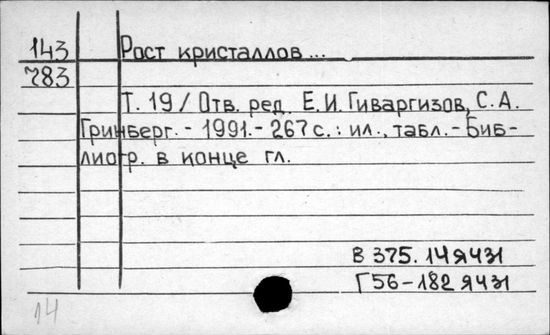 143 Рост кристаллов ...
783
Т. 19 / Отв. ред. Е. И. Гиваргизов, С. А.
Гринберг. - 1991. - 267 с. : ил., табл. - Биб-
лиогр. в конце гл.
В 375. 14 ЯЧЗ1
Г56-182 ЯЧЗ1
14